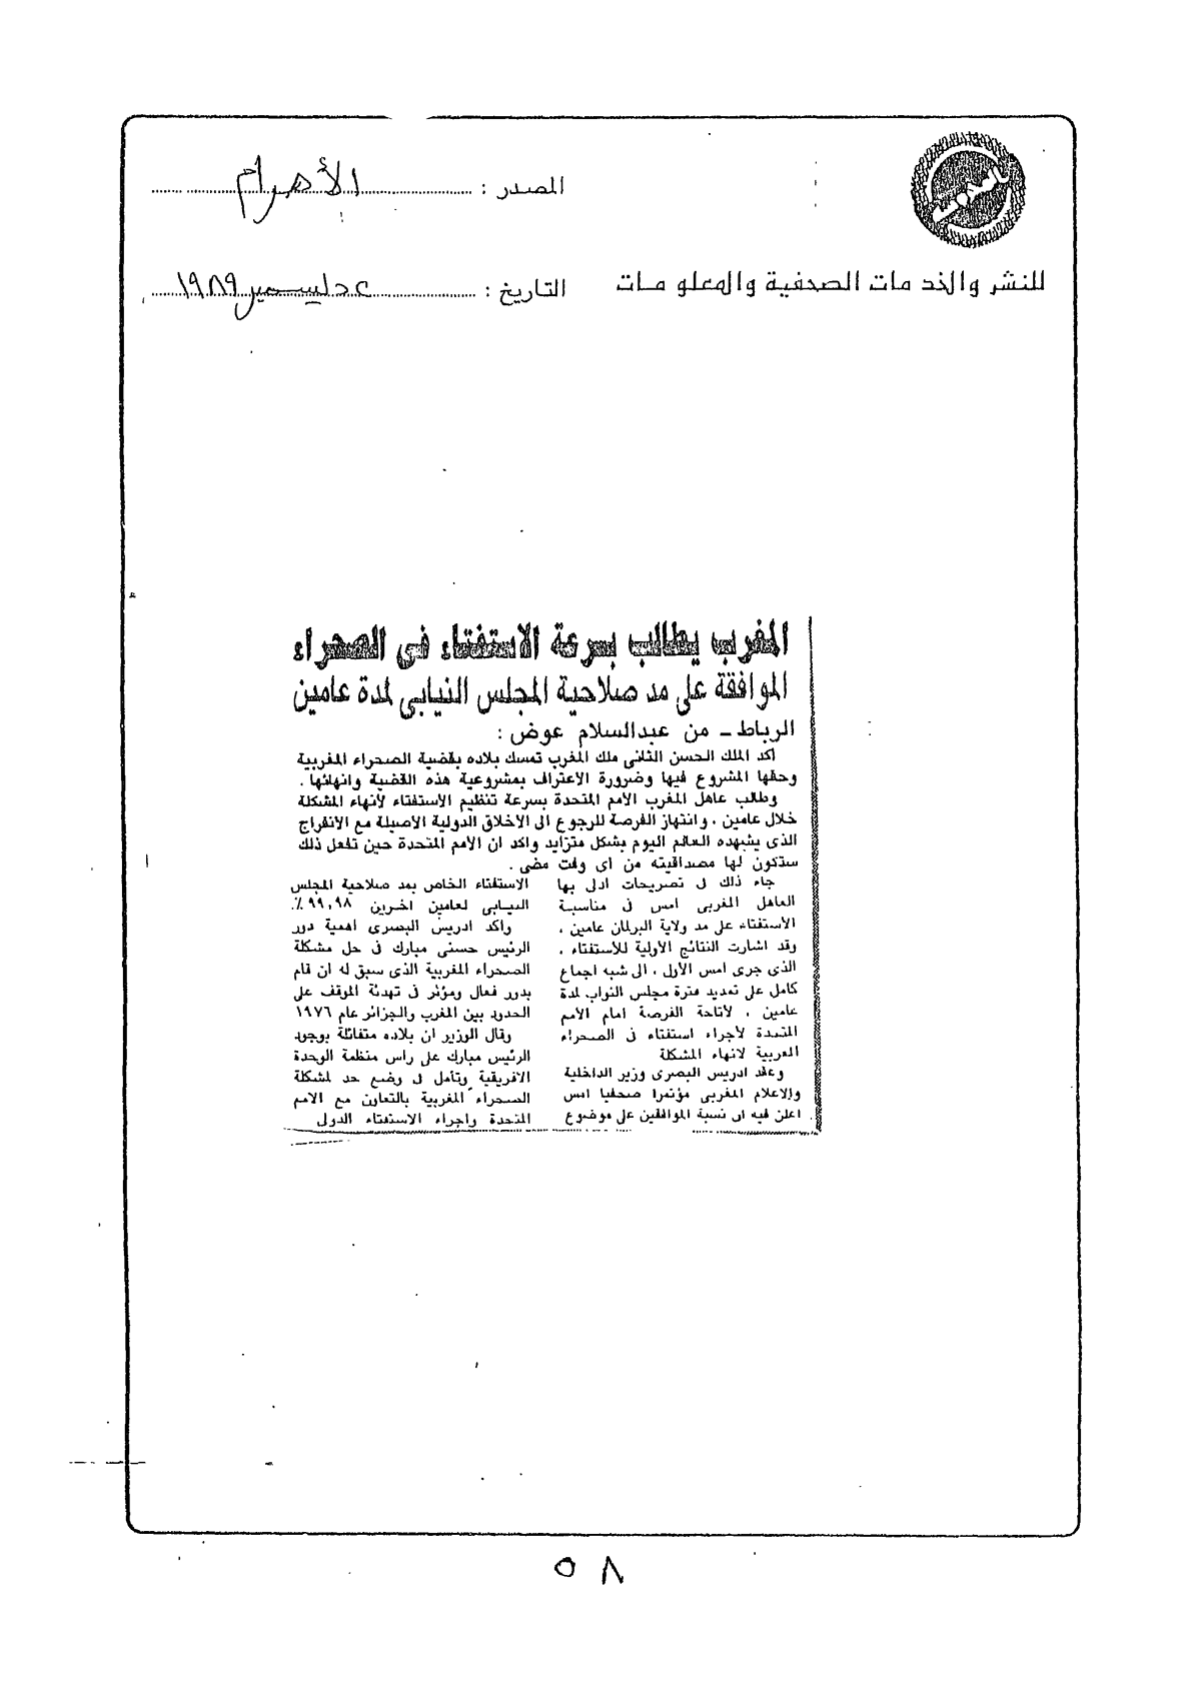 المصدر : الأهرام
للنشر والخدمات الصحفية والمعلومات
التاريخ : ٤ ديسمبر ١٩٨٩
المغرب يطالب بسرعة الاستفتاء فى الصحراء
الموافقة على مد صلاحية المجلس النيابى لمدة عامين
الرباط ـ من عبدالسلام عوض :
اكد الملك الحسن الثانى ملك المغرب تمسك بلاده بقضية الصحراء المغربية
وحقها المشروع فيها وضرورة الاعتراف بمشروعية هذه القضية وانهائها .
وطالب عاهل المغرب الامم المتحدة بسرعة تنظيم الاستفتاء لأنهاء المشكلة
خلال عامين ، وانتهاز الفرصة للرجوع الى الاخلاق الدولية الاصيلة مع الانفراج
الذى يشهده العالم اليوم بشكل متزايد واكد ان الامم المتحدة حين تفعل ذلك
ستكون لها مصداقيته من اى وقت مضى .
جاء ذلك فى تصريحات ادلى بها
العاهل المغربى امس فى مناسبة
الاستفتاء على مد ولاية البرلمان عامين ،
وقد اشارت النتائج الأولية للاستفتاء ،
الذى جرى امس الأول ، الى شبه اجماع
كامل على تمديد فترة مجلس النواب لمدة
عامين ، لأتاحة الفرصة امام الامم
المتحدة لأجراء استفتاء فى الصحراء
المغربية لانهاء المشكلة
وعقد ادريس البصرى وزير الداخلية
والاعلام المغربى مؤتمرا صحفيا امس
اعلن فيه ان نسبة الموافقين على موضوع
الاستفتاء الخاص بمد صلاحية المجلس
النيابى لعامين اخرين ٩٩,٩٨ ٪.
واكد ادريس البصرى اهمية دور
الرئيس حسنى مبارك فى حل مشكلة
الصحراء المغربية الذى سبق له ان قام
بدور فعال ومؤثر فى تهدئة الموقف على
الحدود بين المغرب والجزائر عام ١٩٧٦
وقال الوزير ان بلاده متفائلة بوجود
الرئيس مبارك على راس منظمة الوحدة
الافريقية وتأمل فى وضع حد لمشكلة
الصحراء المغربية بالتعاون مع الامم
المتحدة واجراء الاستفتاء الدولى
٥٨